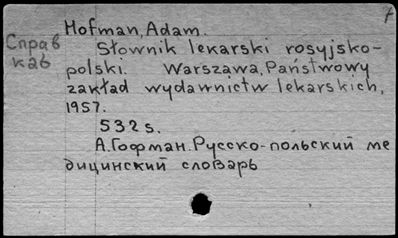 Hofman, Adam.
Справ
каб
Słownik lekarski rosyjsko-
polski. Warszawa, Państwowy
zakład wydawnictw lekarskich,
1957.
532 s.
А. Гофман. Русско-польский ме
дицинский словарь